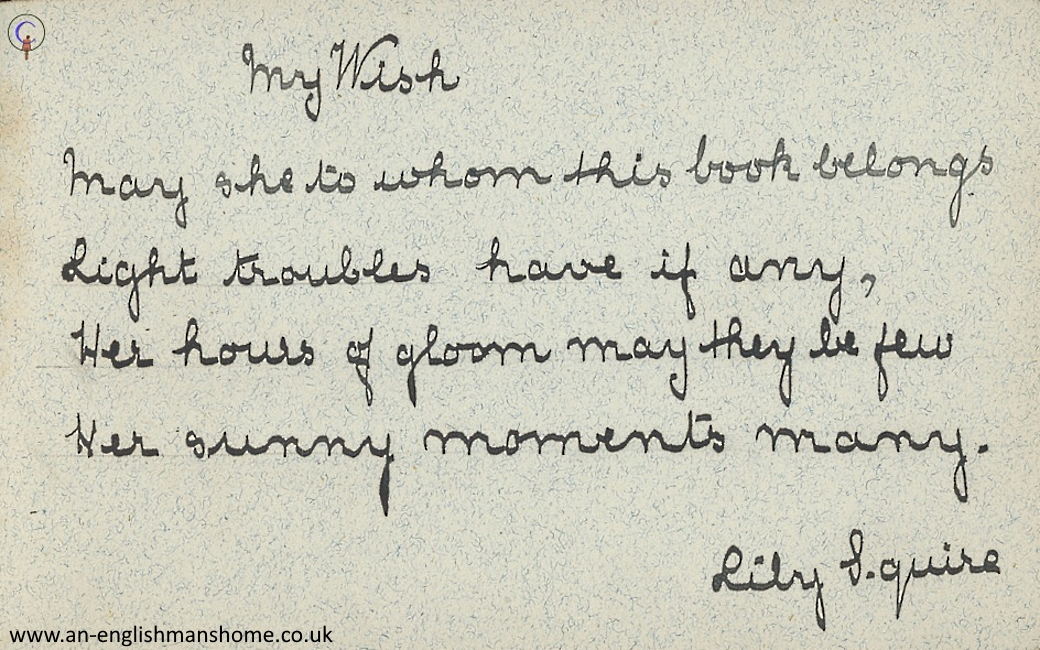 My Wish
May she to whom this book belongs
Light troubles have if any,
Her hours of gloom may they be few
Her sunny moments many.
Lily Squire
www.an-englishmanshome.co.uk